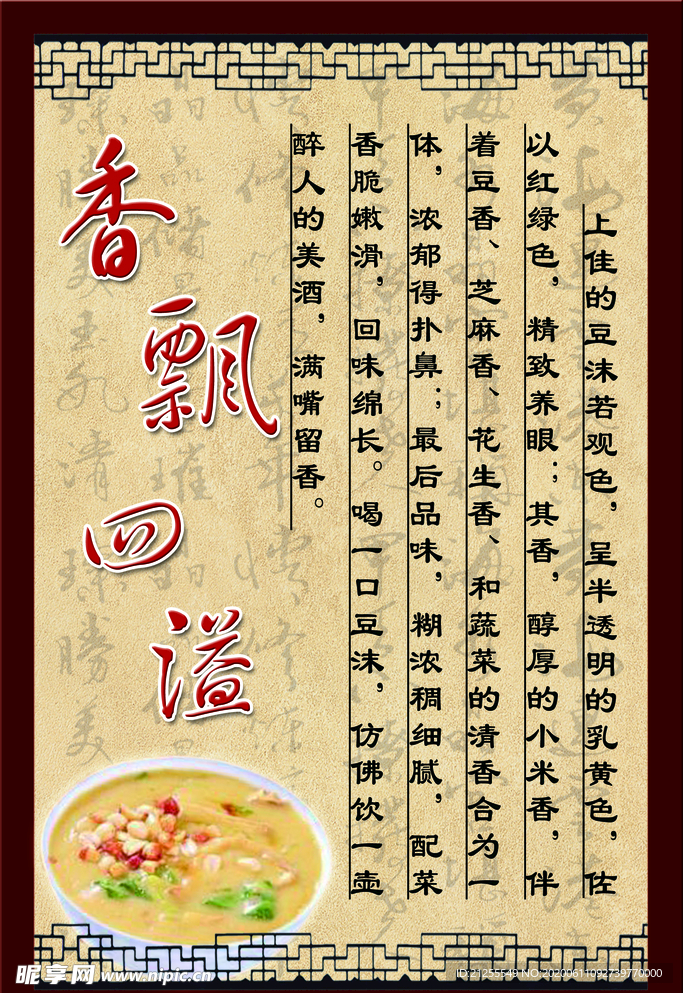 香飘四溢
上佳的豆沫若观色，呈半透明的乳黄色，佐
以红绿色，精致养眼；其香，醇厚的小米香，伴
着豆香、芝麻香、花生香、和蔬菜的清香合为一
体，浓郁得扑鼻；最后品味，糊浓稠细腻，配菜
香脆嫩滑，回味绵长。喝一口豆沫，仿佛饮一壶
醉人的美酒，满嘴留香。
昵享网 www.nipic.cn
ID:21255549 NO:20200611092739770000